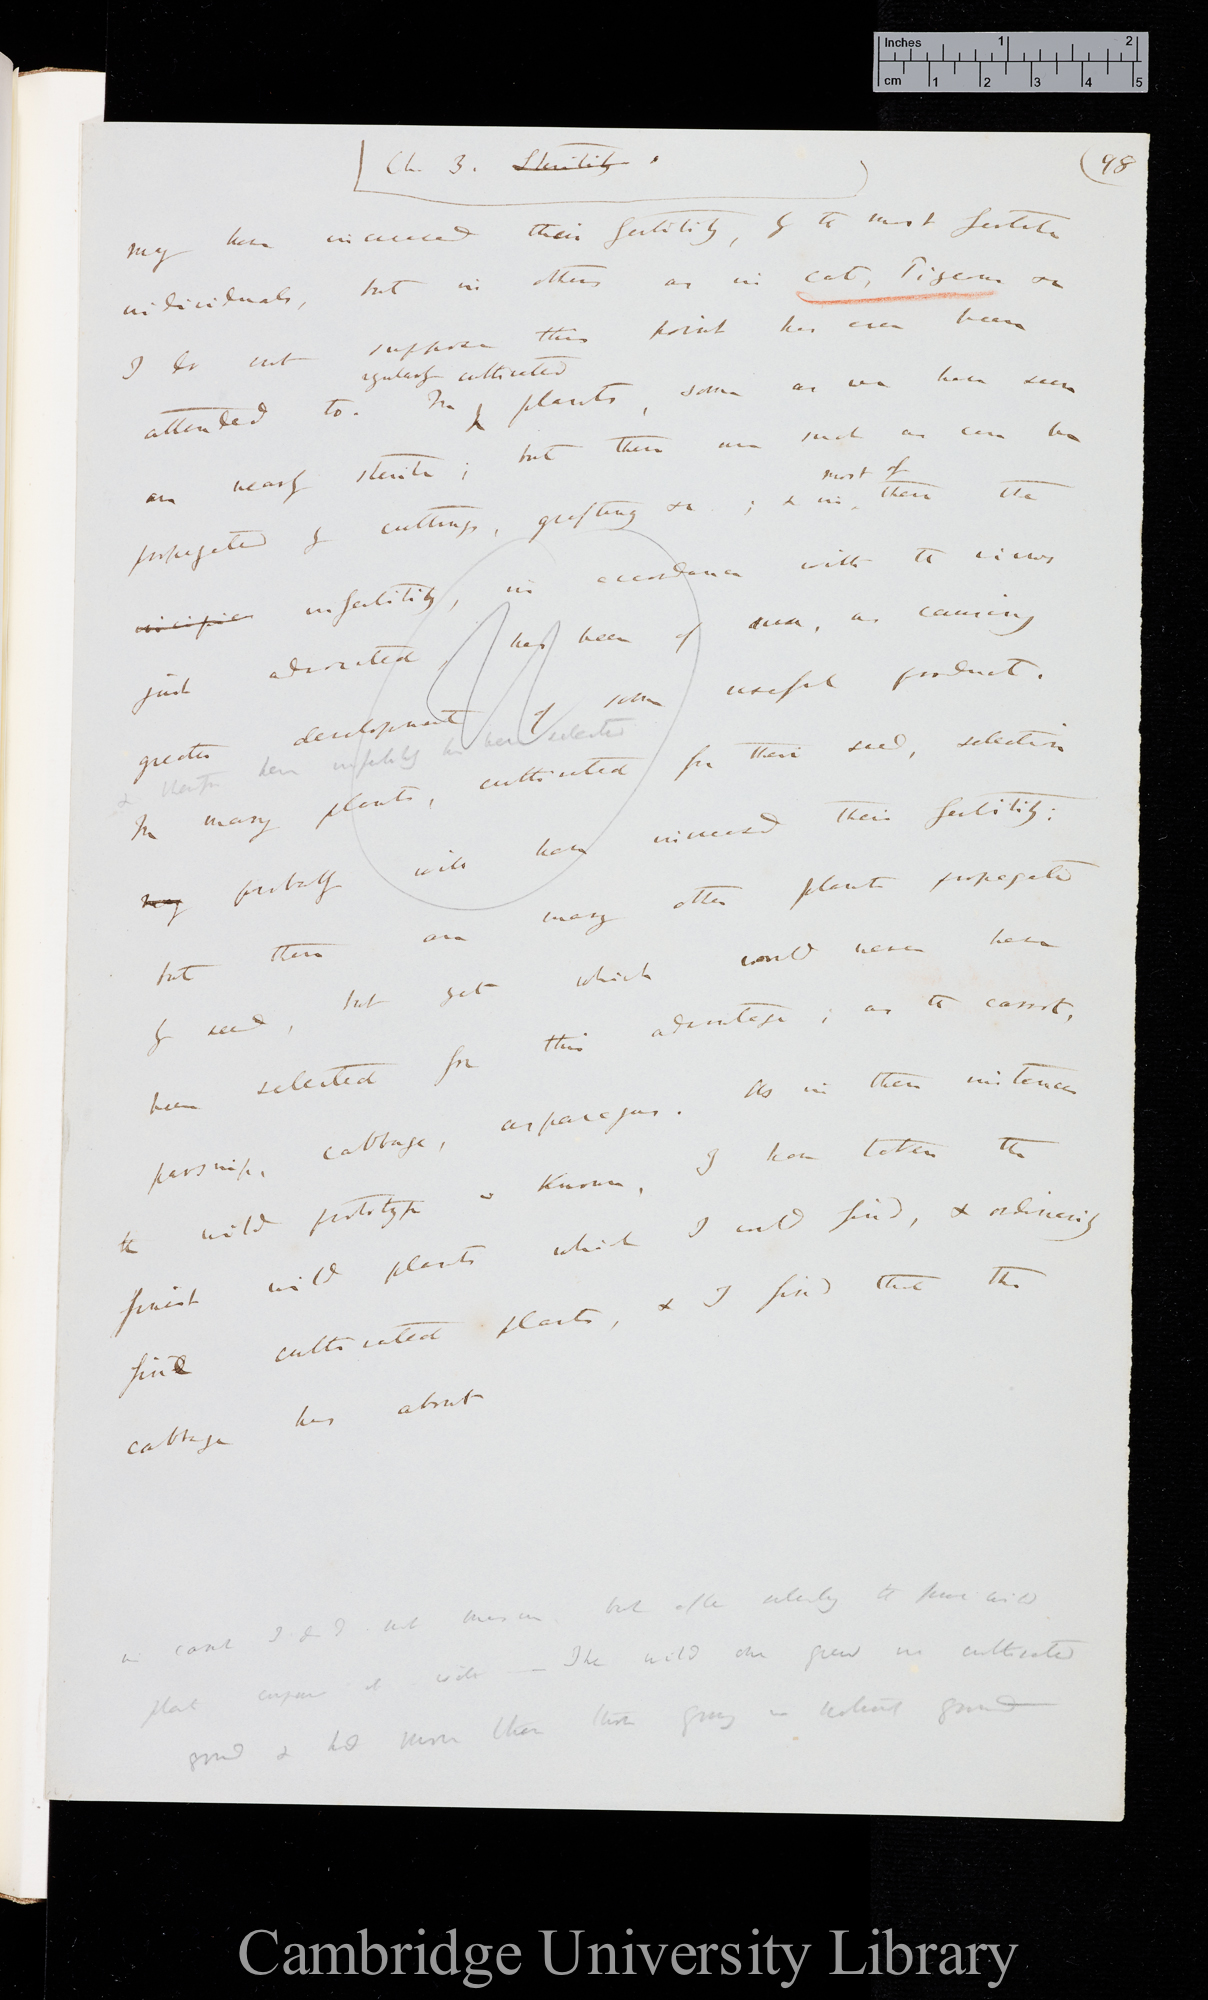 Inches 1 2
cm 1 2 3 4 5
Ch. 3. Sterility.
98
may have increased their fertility, by the most fertile
individuals, but in others as in cat, Pigeon &c
I do not suppose this point has even been
regularly cultivated
attended to. In plants, some as we have seen
are nearly sterile; but these are such as can be
most of
propagated by cuttings, grafting &c; & in these the
infertility, in accordance with the views
just advocated, has been of use, as causing
greater development of some useful product.
& therefore have infertility has been selected
In many plants, cultivated for their seed, selection
may probably will have increased their fertility;
but there are many other plants propagated
by seed, but yet which would never have
been selected for this advantage; as the carrot,
parsnip, cabbage, asparagus. As in these instances
the wild prototype is known, I have taken the
finest wild plants which I could find, & ordinarily
fine cultivated plants, & I find that the
cabbage has about
in carrot I did not measure but after selecting the finest wild
plant compared it with — The wild one grew in cultivated
ground & had more than those growing in ground
Cambridge University Library